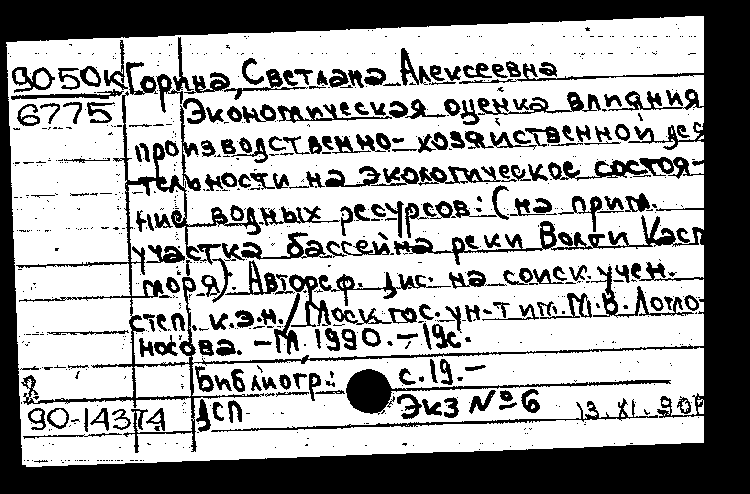 9050к Горина, Светлана Алексеевна
6775 Экономическая оценка влияния
производственно-хозяйственной дея
тельности на экологическое состоя-
ние водных ресурсов: (на прим.
участка бассейна реки Волги Касп
моря). Автореф. дис. на соиск. учен.
степ. к.э.н. / Моск гос. ун-т им. М.В. Ломо-
носова. – М. 1990. – 19с.
Библиогр.: с. 19. –
90-14374 ДСП Экз № 6 13.XI.90г